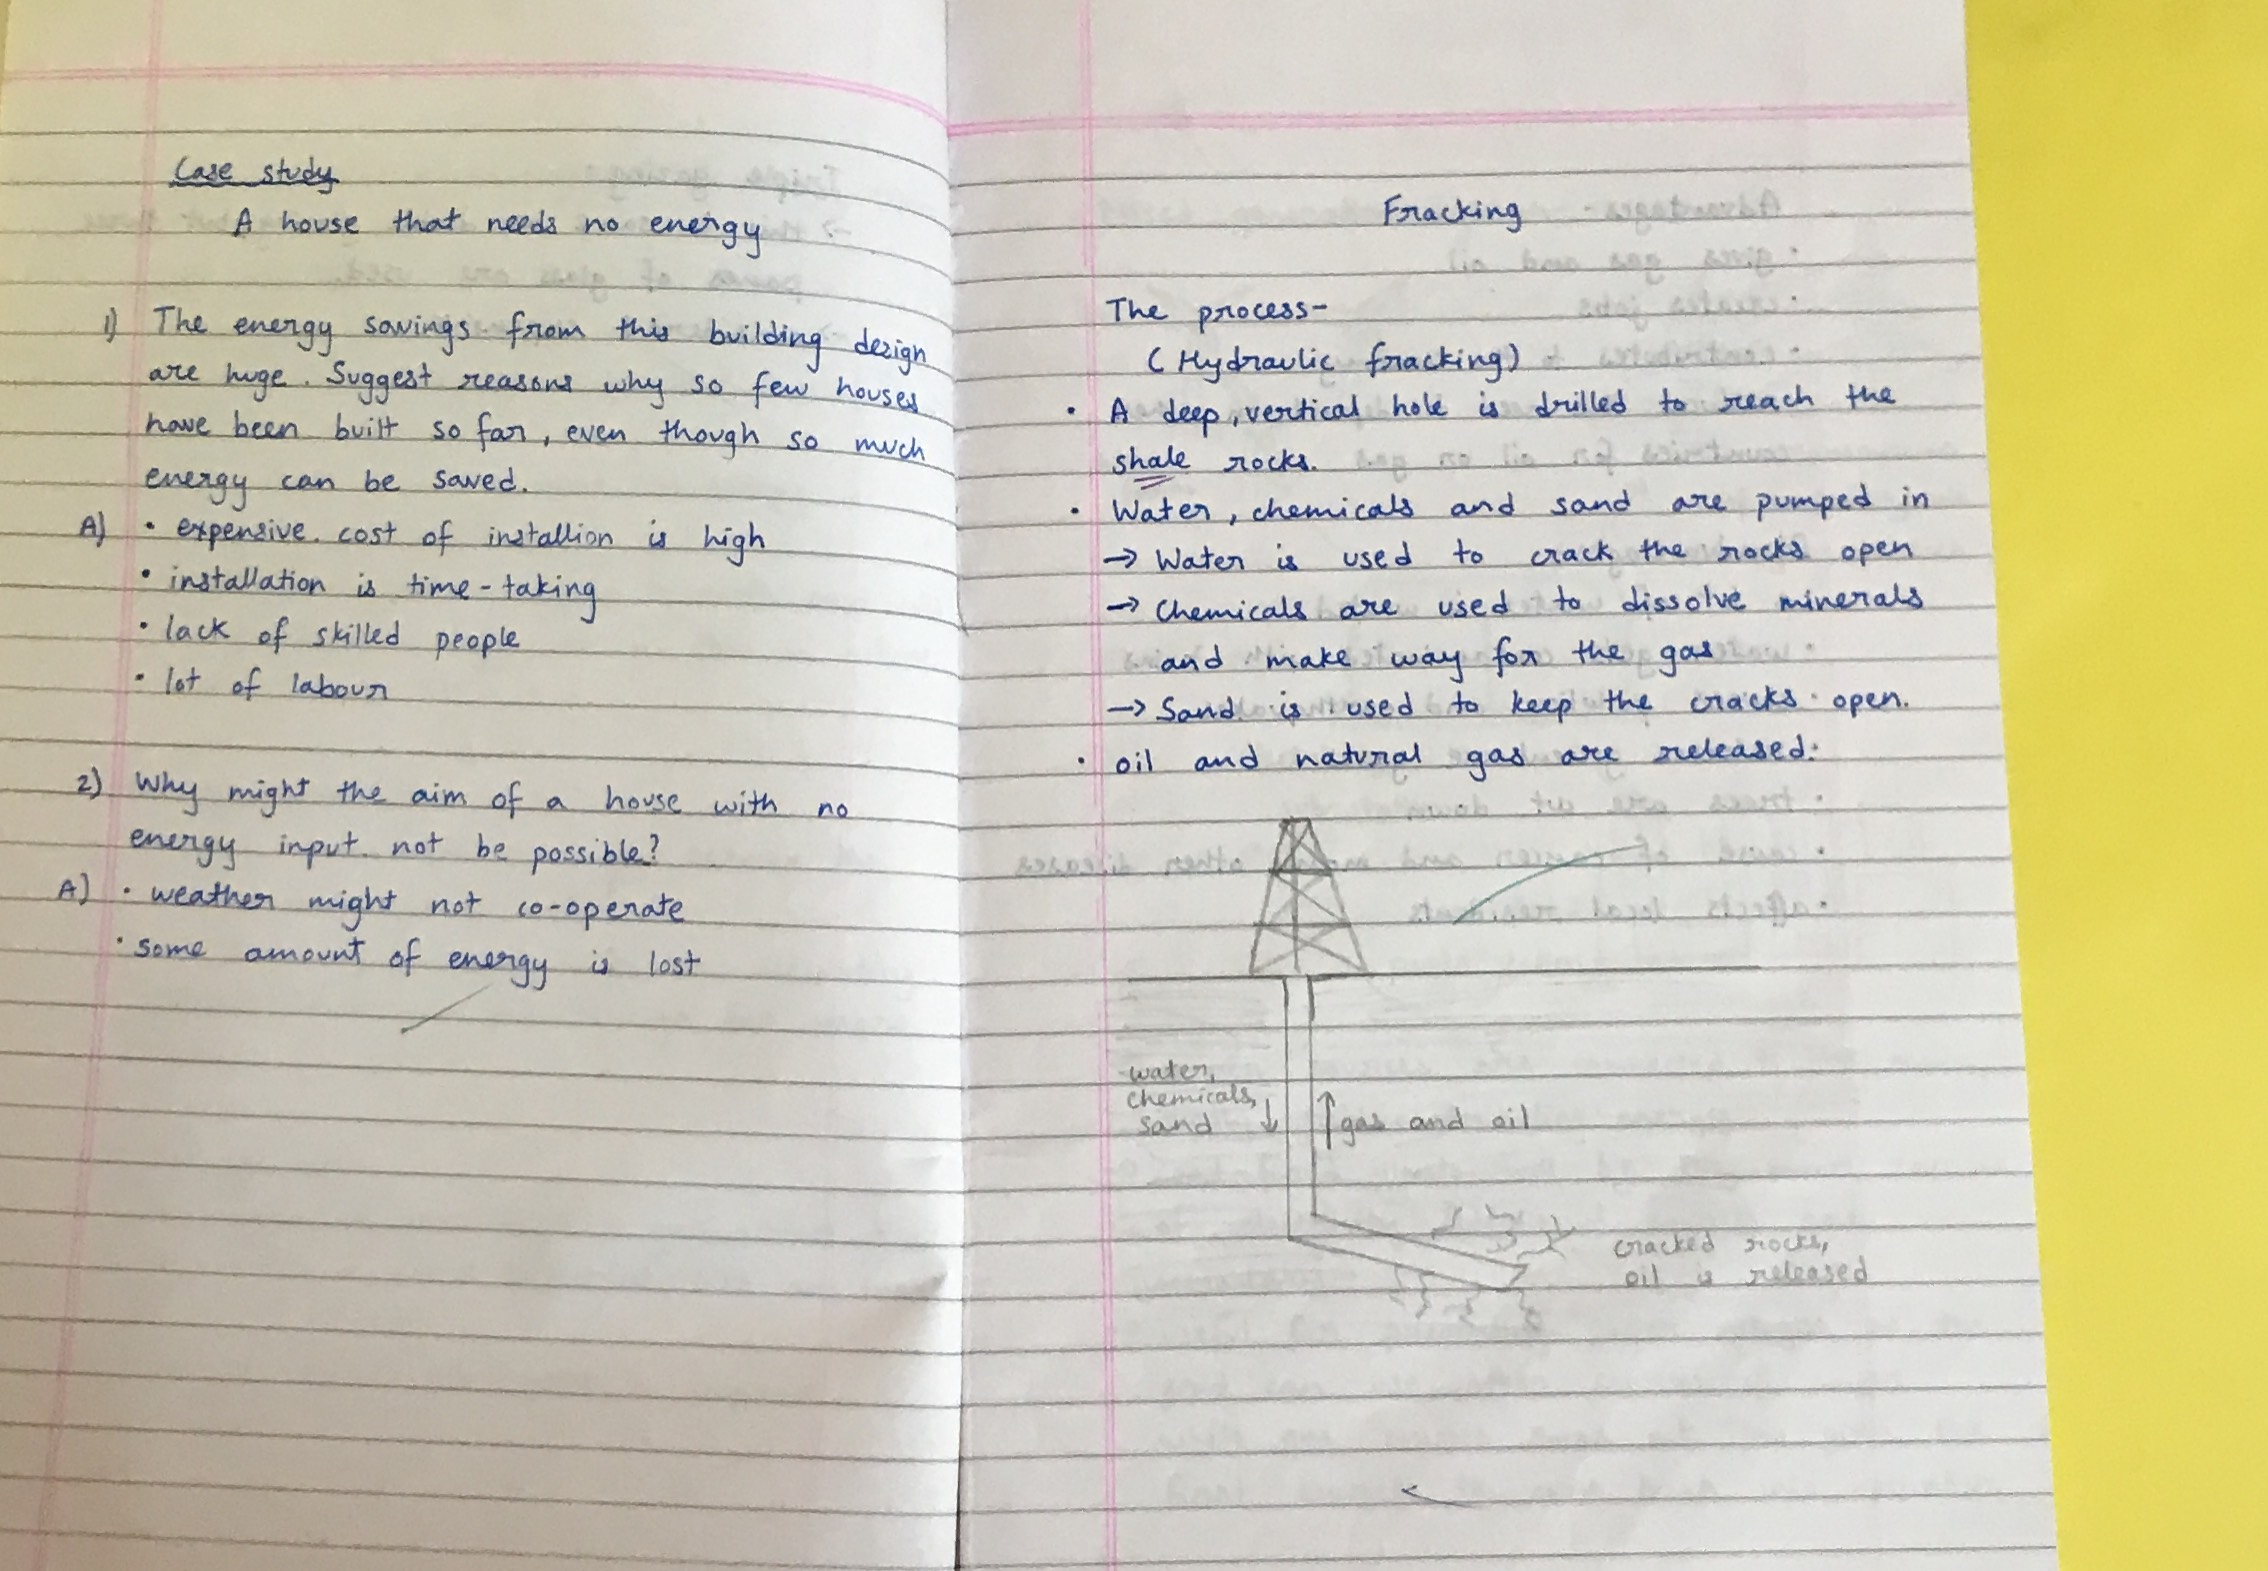 Case study
A house that needs no energy
1) The energy savings from this building dezign
are huge. Suggest reasons why so few houses
have been built so far, even though so much
energy can be saved.
A) • expensive. cost of installion is high
• installation is time-taking
• lack of skilled people
• lot of labour
2) Why might the aim of a house with no
energy input not be possible?
A) • weather might not co-operate
• some amount of energy is lost
Fracking
The process-
(Hydraulic fracking)
• A deep, vertical hole is drilled to reach the
shale rocks.
• Water, chemicals and sand are pumped in
→ Water is used to crack the rocks open
→ Chemicals are used to dissolve minerals
and make way for the gas
→ Sand is used to keep the cracks open.
• oil and natural gas are released.
water,
chemicals,
sand ↓
↑ gas and oil
cracked rocks,
oil is released